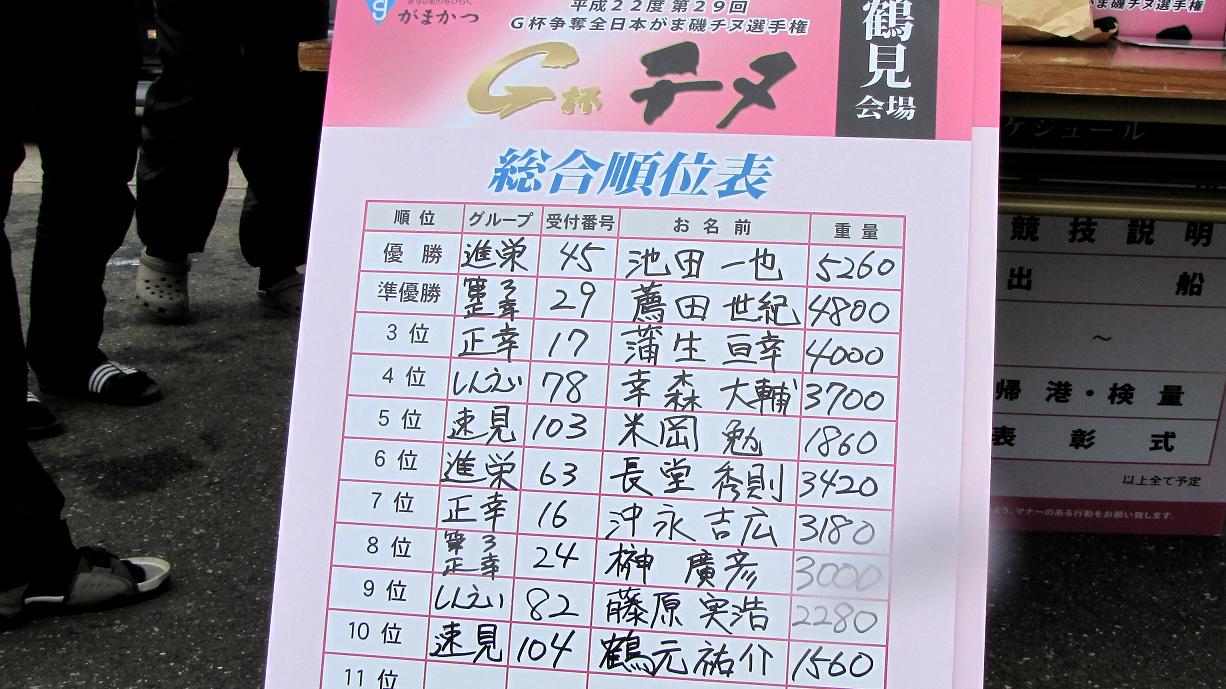 がまかつ
平成22度第29回
G杯争奪全日本がま磯チヌ選手権
G杯 チヌ
鶴見
会場
総合順位表
順位 グループ 受付番号 お名前 重量
優勝 進栄 45 池田 一也 5260
準優勝 第3正幸 29 薦田 世紀 4800
3位 正幸 17 蒲生 亘幸 4000
4位 しんえい 78 幸森 大輔 3700
5位 速見 103 米岡 勉 1860
6位 進栄 63 長堂 秀則 3420
7位 正幸 16 沖永 吉広 3180
8位 第3正幸 24 榊 廣彦 3000
9位 しんえい 82 藤原 実浩 2280
10位 速見 104 鶴元 祐介 1560
11位
がま磯チヌ選手権
ケジュール
競技説明
出船
～
帰港・検量
表彰式
以上全て予定
よう、マナーのある行動をお願い致します。